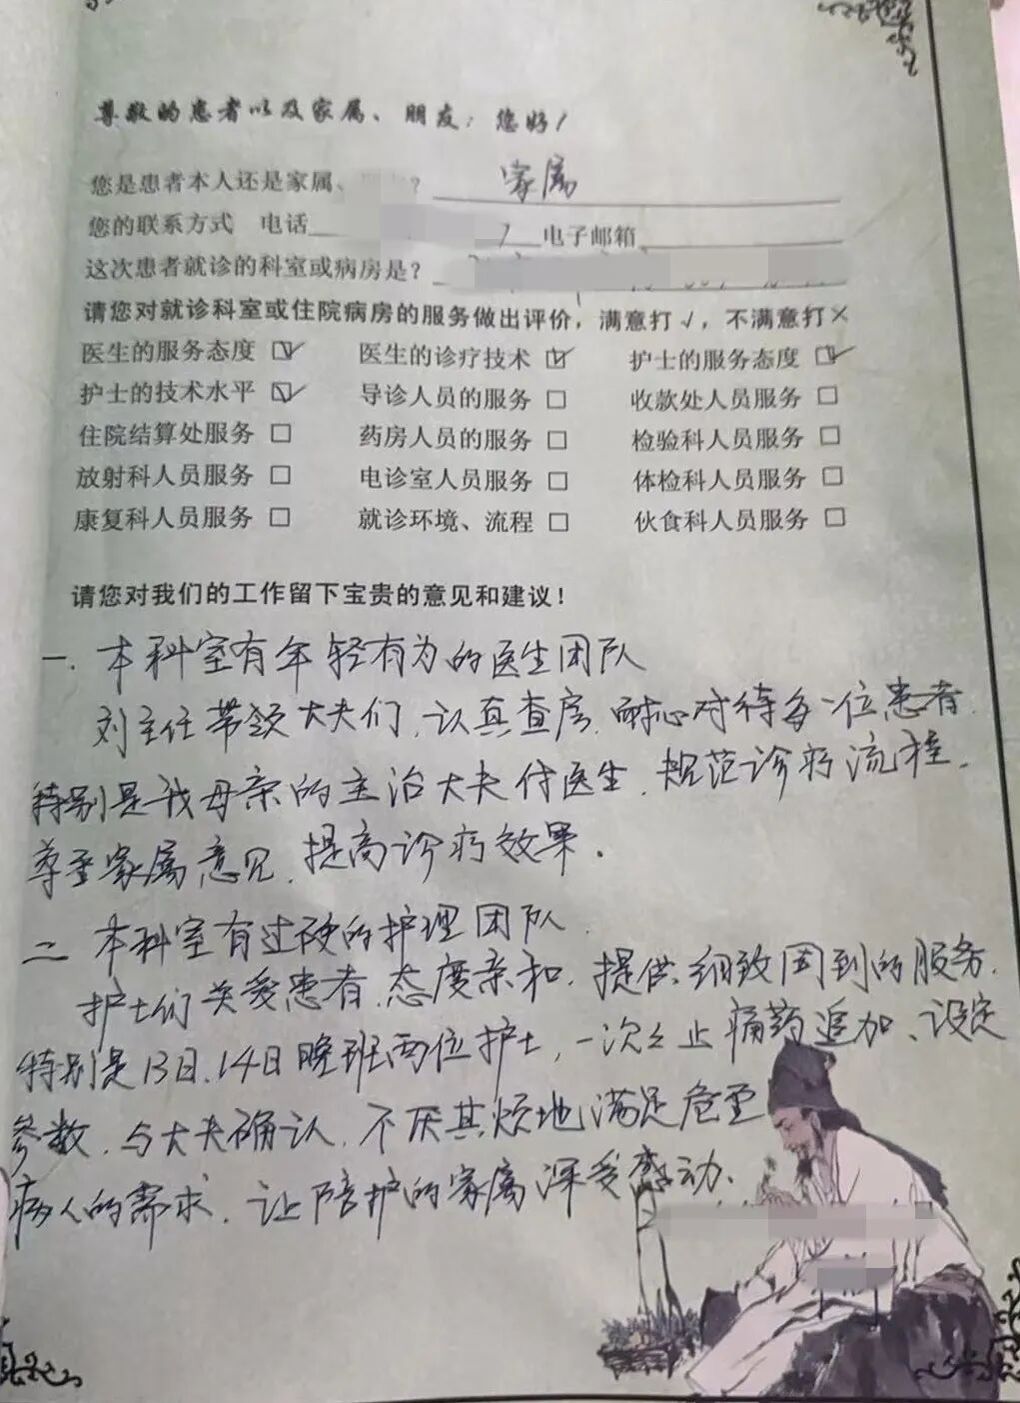 尊敬的患者以及家属、朋友：您好！
您是患者本人还是家属、？ 家属
您的联系方式 电话 7 电子邮箱
这次患者就诊的科室或病房是？
请您对就诊科室或住院病房的服务做出评价，满意打√，不满意打×
医生的服务态度 ☑ 医生的诊疗技术 ☑ 护士的服务态度 ☑
护士的技术水平 ☑ 导诊人员的服务 □ 收款处人员服务 □
住院结算处服务 □ 药房人员的服务 □ 检验科人员服务 □
放射科人员服务 □ 电诊室人员服务 □ 体检科人员服务 □
康复科人员服务 □ 就诊环境、流程 □ 伙食科人员服务 □
请您对我们的工作留下宝贵的意见和建议！
一、本科室有年轻有为的医生团队
刘主任带领大夫们、认真查房、耐心对待每一位患者、
特别是我母亲的主治大夫付医生、规范诊疗流程、
尊重家属意见、提高诊疗效果。
二 本科室有过硬的护理团队、
护士们关爱患者、态度亲和、提供细致周到的服务、
特别是13日、14日晚班两位护士，一次次止痛药追加、设定
参数、与大夫确认、不厌其烦地满足危重
病人的需求、让陪护的家属深受感动、